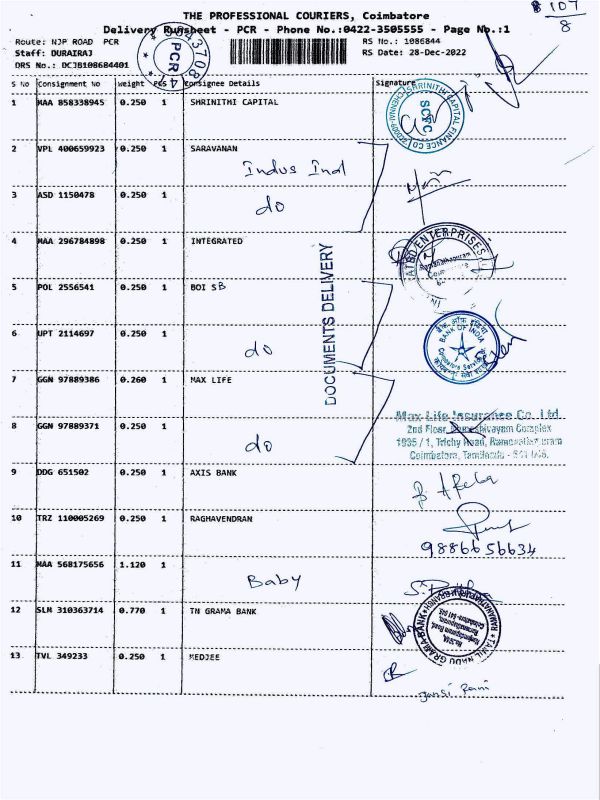 THE PROFESSIONAL COURIERS, Coimbatore
107
8
Delivery Runsheet - PCR - Phone No.:0422-3505555 - Page No.:1
Route: NJP ROAD PCR
RS No.: 1086844
Staff: DURAIRAJ
RS Date: 28-Dec-2022
DRS No.: DCJB108684401
PCR
S No Consignment No weight PCS Consignee Details Signature
1 MAA 858338945 0.250 1 SHRINITHI CAPITAL
SHRINITHI CAPITAL FINANCE CO
SCFC
2 VPL 400659923 0.250 1 SARAVANAN
Indus Ind
3 ASD 1150478 0.250 1
do
4 MAA 296784898 0.250 1 INTEGRATED
ENTERPRISES
Ramanathapuram
DOCUMENTS DELIVERY
5 POL 2556541 0.250 1 BOI SB
बैंक ऑफ़ इंडिया
BANK OF INDIA
6 UPT 2114697 0.250 1
do
7 GGN 97889386 0.260 1 MAX LIFE
8 GGN 97889371 0.250 1
do
Max Life Insurance Co. Ltd.
2nd Floor, Complex
1935 / 1, Trichy Road, Ramanathapuram
Coimbatore, Tamilnadu -
9 DDG 651502 0.250 1 AXIS BANK
10 TRZ 110005269 0.250 1 RAGHAVENDRAN
9886656634
11 MAA 568175656 1.120 1
Baby
12 SLM 310363714 0.770 1 TN GRAMA BANK
TAMIL NADU GRAMA BANK
13 TVL 349233 0.250 1 MEDJEE
Jansi Rani